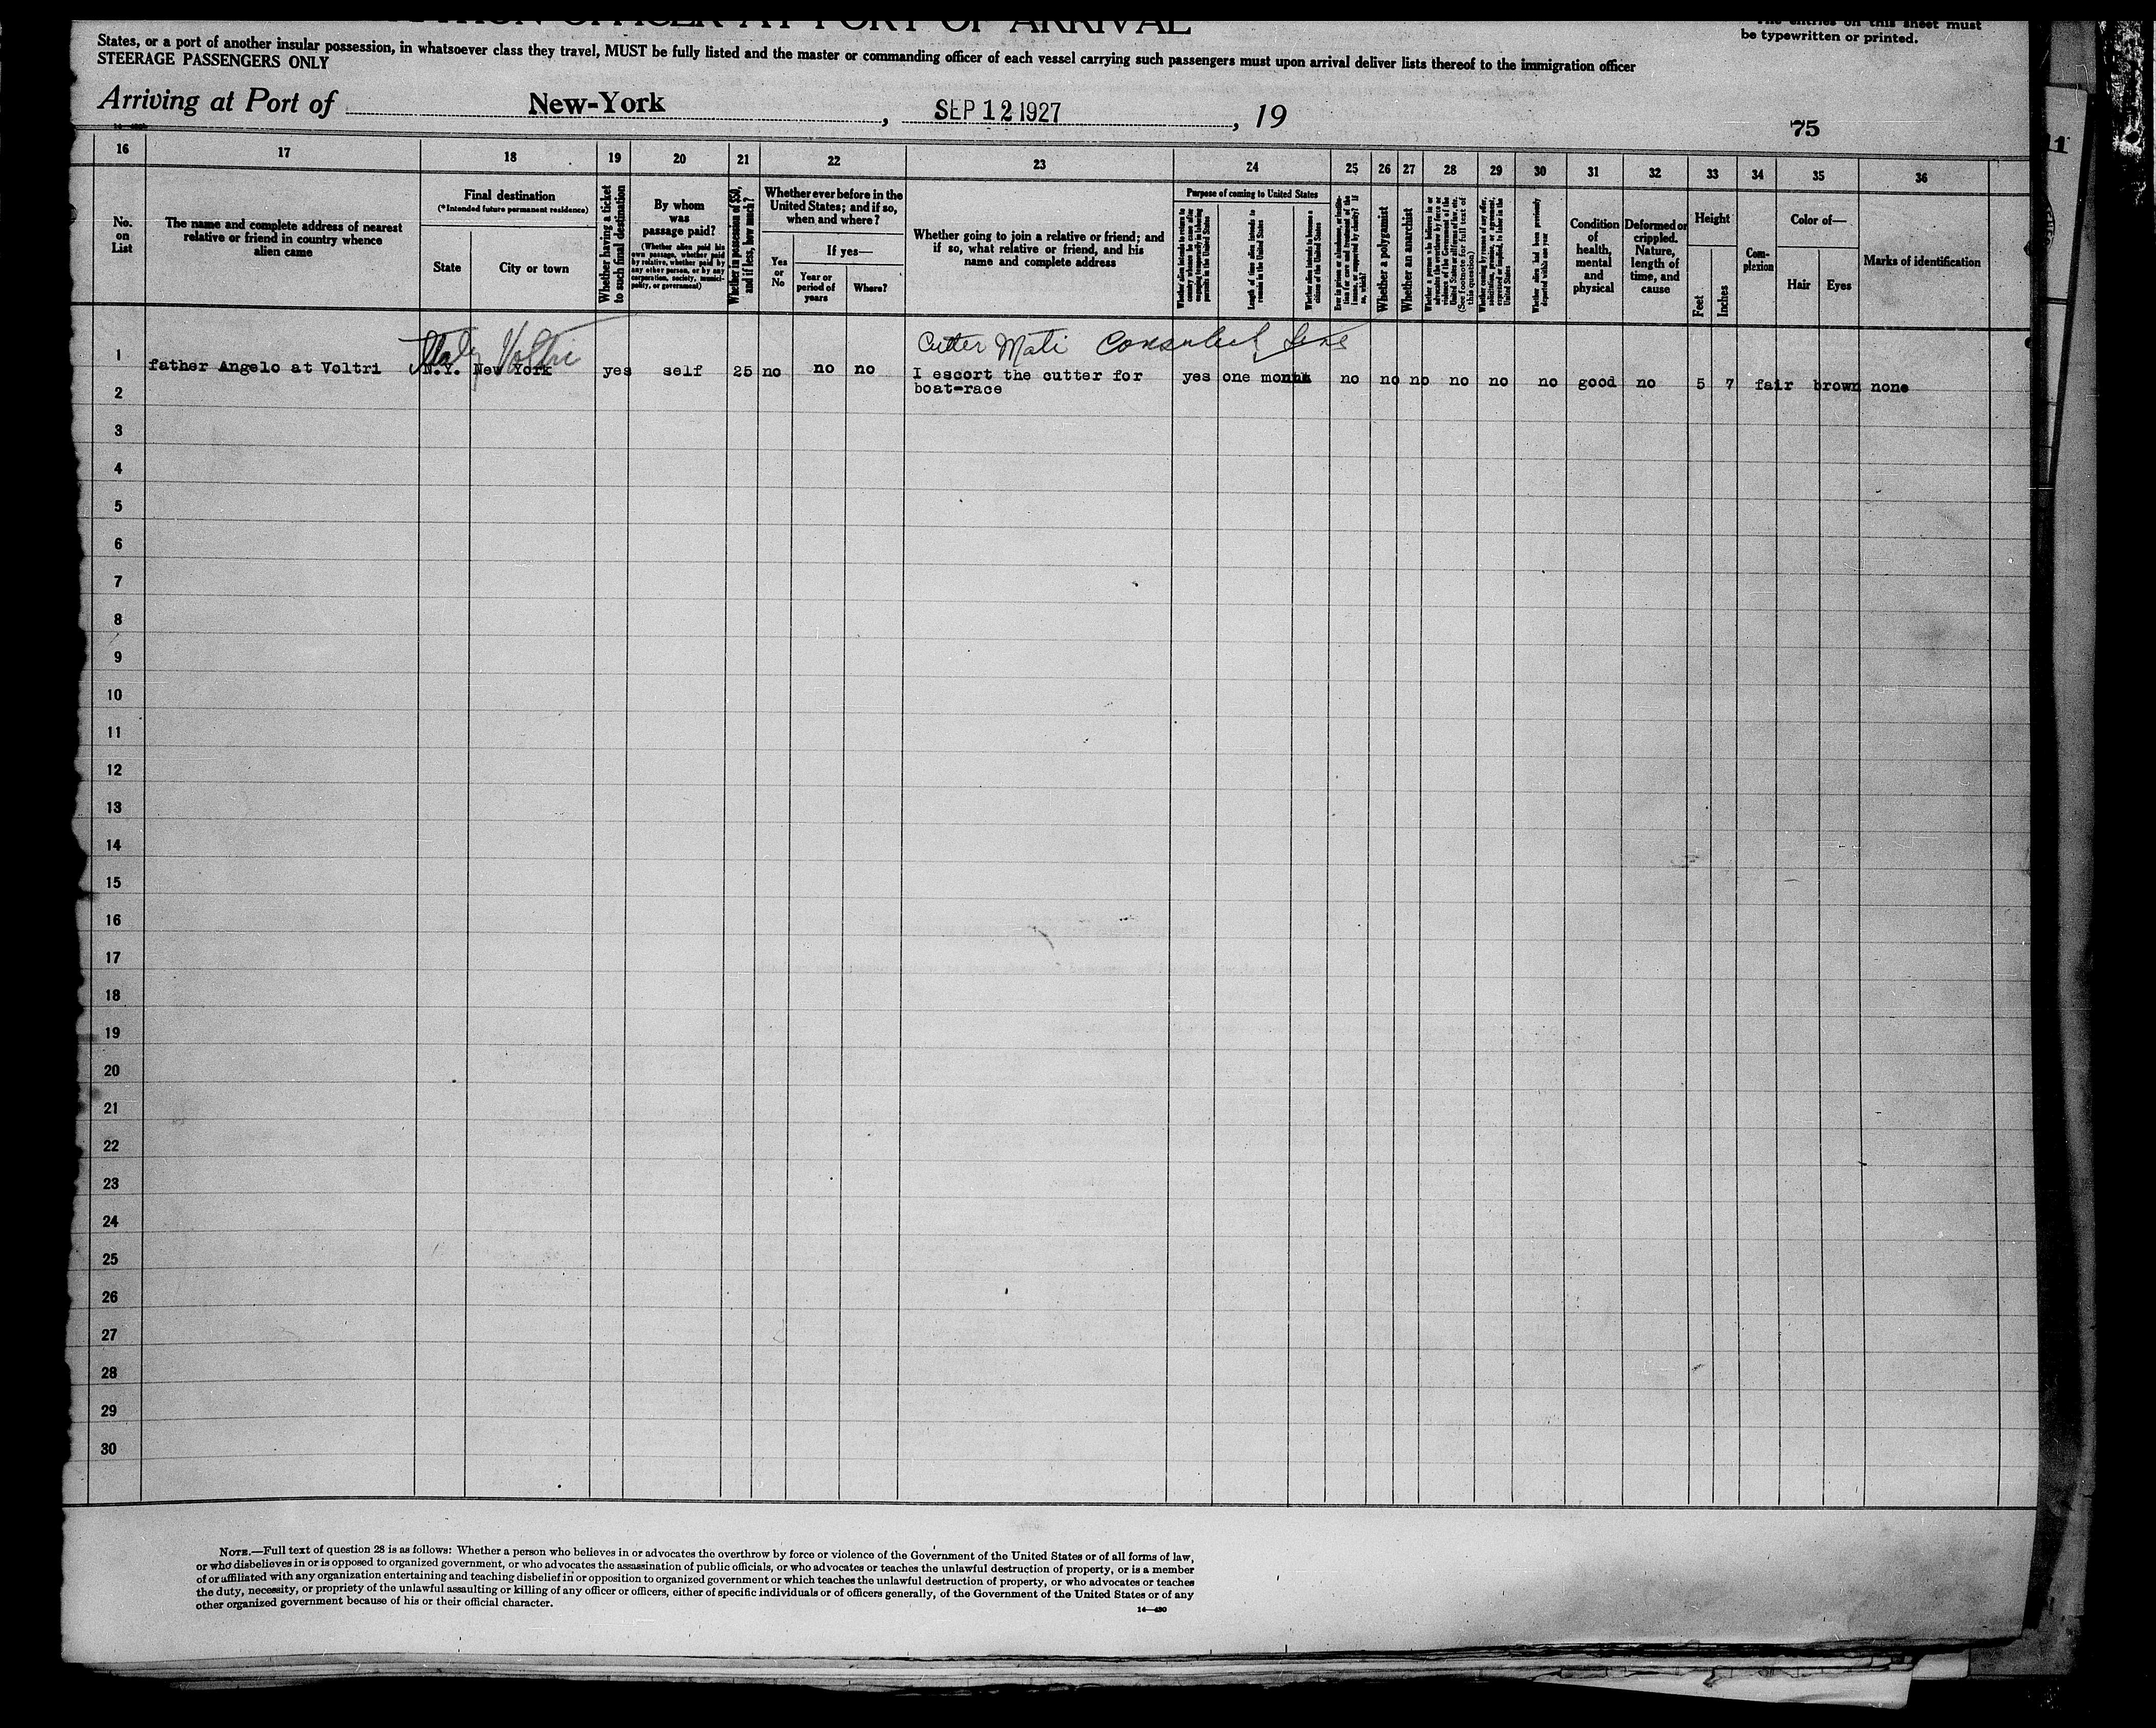 OFFICER AT PORT OF ARRIVAL
The entries on this sheet must
be typewritten or printed.
States, or a port of another insular possession, in whatsoever class they travel, MUST be fully listed and the master or commanding officer of each vessel carrying such passengers must upon arrival deliver lists thereof to the immigration officer
STEERAGE PASSENGERS ONLY
Arriving at Port of New-York, SEP 12 1927, 19
75
16 17 18 19 20 21 22 23 24 25 26 27 28 29 30 31 32 33 34 35 36
No.
on
List
The name and complete address of nearest
relative or friend in country whence
alien came
Final destination
(*Intended future permanent residence)
State
City or town
Whether having a ticket
to such final destination
By whom
was
passage paid?
(Whether alien paid his
own passage, whether paid
by relative, whether paid by
any other person, or by any
corporation, society, munici-
pality, or government)
Whether in possession of $50,
and if less, how much?
Whether ever before in the
United States; and if so,
when and where?
Yes
or
No
If yes—
Year or
period of
years
Where?
Whether going to join a relative or friend; and
if so, what relative or friend, and his
name and complete address
Purpose of coming to United States
Whether alien intends to return to
country whence he came after
engaging temporarily in laboring
pursuits in the United States
Length of time alien intends to
remain in the United States
Whether alien intends to become a
citizen of the United States
Ever in prison or almshouse, or institu-
tion for care and treatment of the
insane, or supported by charity? If
so, which?
Whether a polygamist
Whether an anarchist
Whether a person who believes in or
advocates the overthrow by force or
violence of the Government of the
United States or all forms of law, etc.
(See footnote for full text of
this question)
Whether coming by reason of any offer,
solicitation, promise, or agreement,
expressed or implied, to labor in the
United States
Whether alien had been previously
deported within one year
Condition
of
health,
mental
and
physical
Deformed or
crippled.
Nature,
length of
time, and
cause
Height
Feet
Inches
Com-
plexion
Color of—
Hair
Eyes
Marks of identification
Italy Voltri
Cutter Mati
1
father Angelo at Voltri N.Y. New York yes self 25 no no no I escort the cutter for yes one month no no no no no no good no 5 7 fair brown none
boat-race
2
3
4
5
6
7
8
9
10
11
12
13
14
15
16
17
18
19
20
21
22
23
24
25
26
27
28
29
30
NOTE.—Full text of question 28 is as follows: Whether a person who believes in or advocates the overthrow by force or violence of the Government of the United States or of all forms of law,
or who disbelieves in or is opposed to organized government, or who advocates the assassination of public officials, or who advocates or teaches the unlawful destruction of property, or is a member
of or affiliated with any organization entertaining and teaching disbelief in or opposition to organized government or which teaches the unlawful destruction of property, or who advocates or teaches
the duty, necessity, or propriety of the unlawful assaulting or killing of any officer or officers, either of specific individuals or of officers generally, of the Government of the United States or of any
other organized government because of his or their official character.
14—430